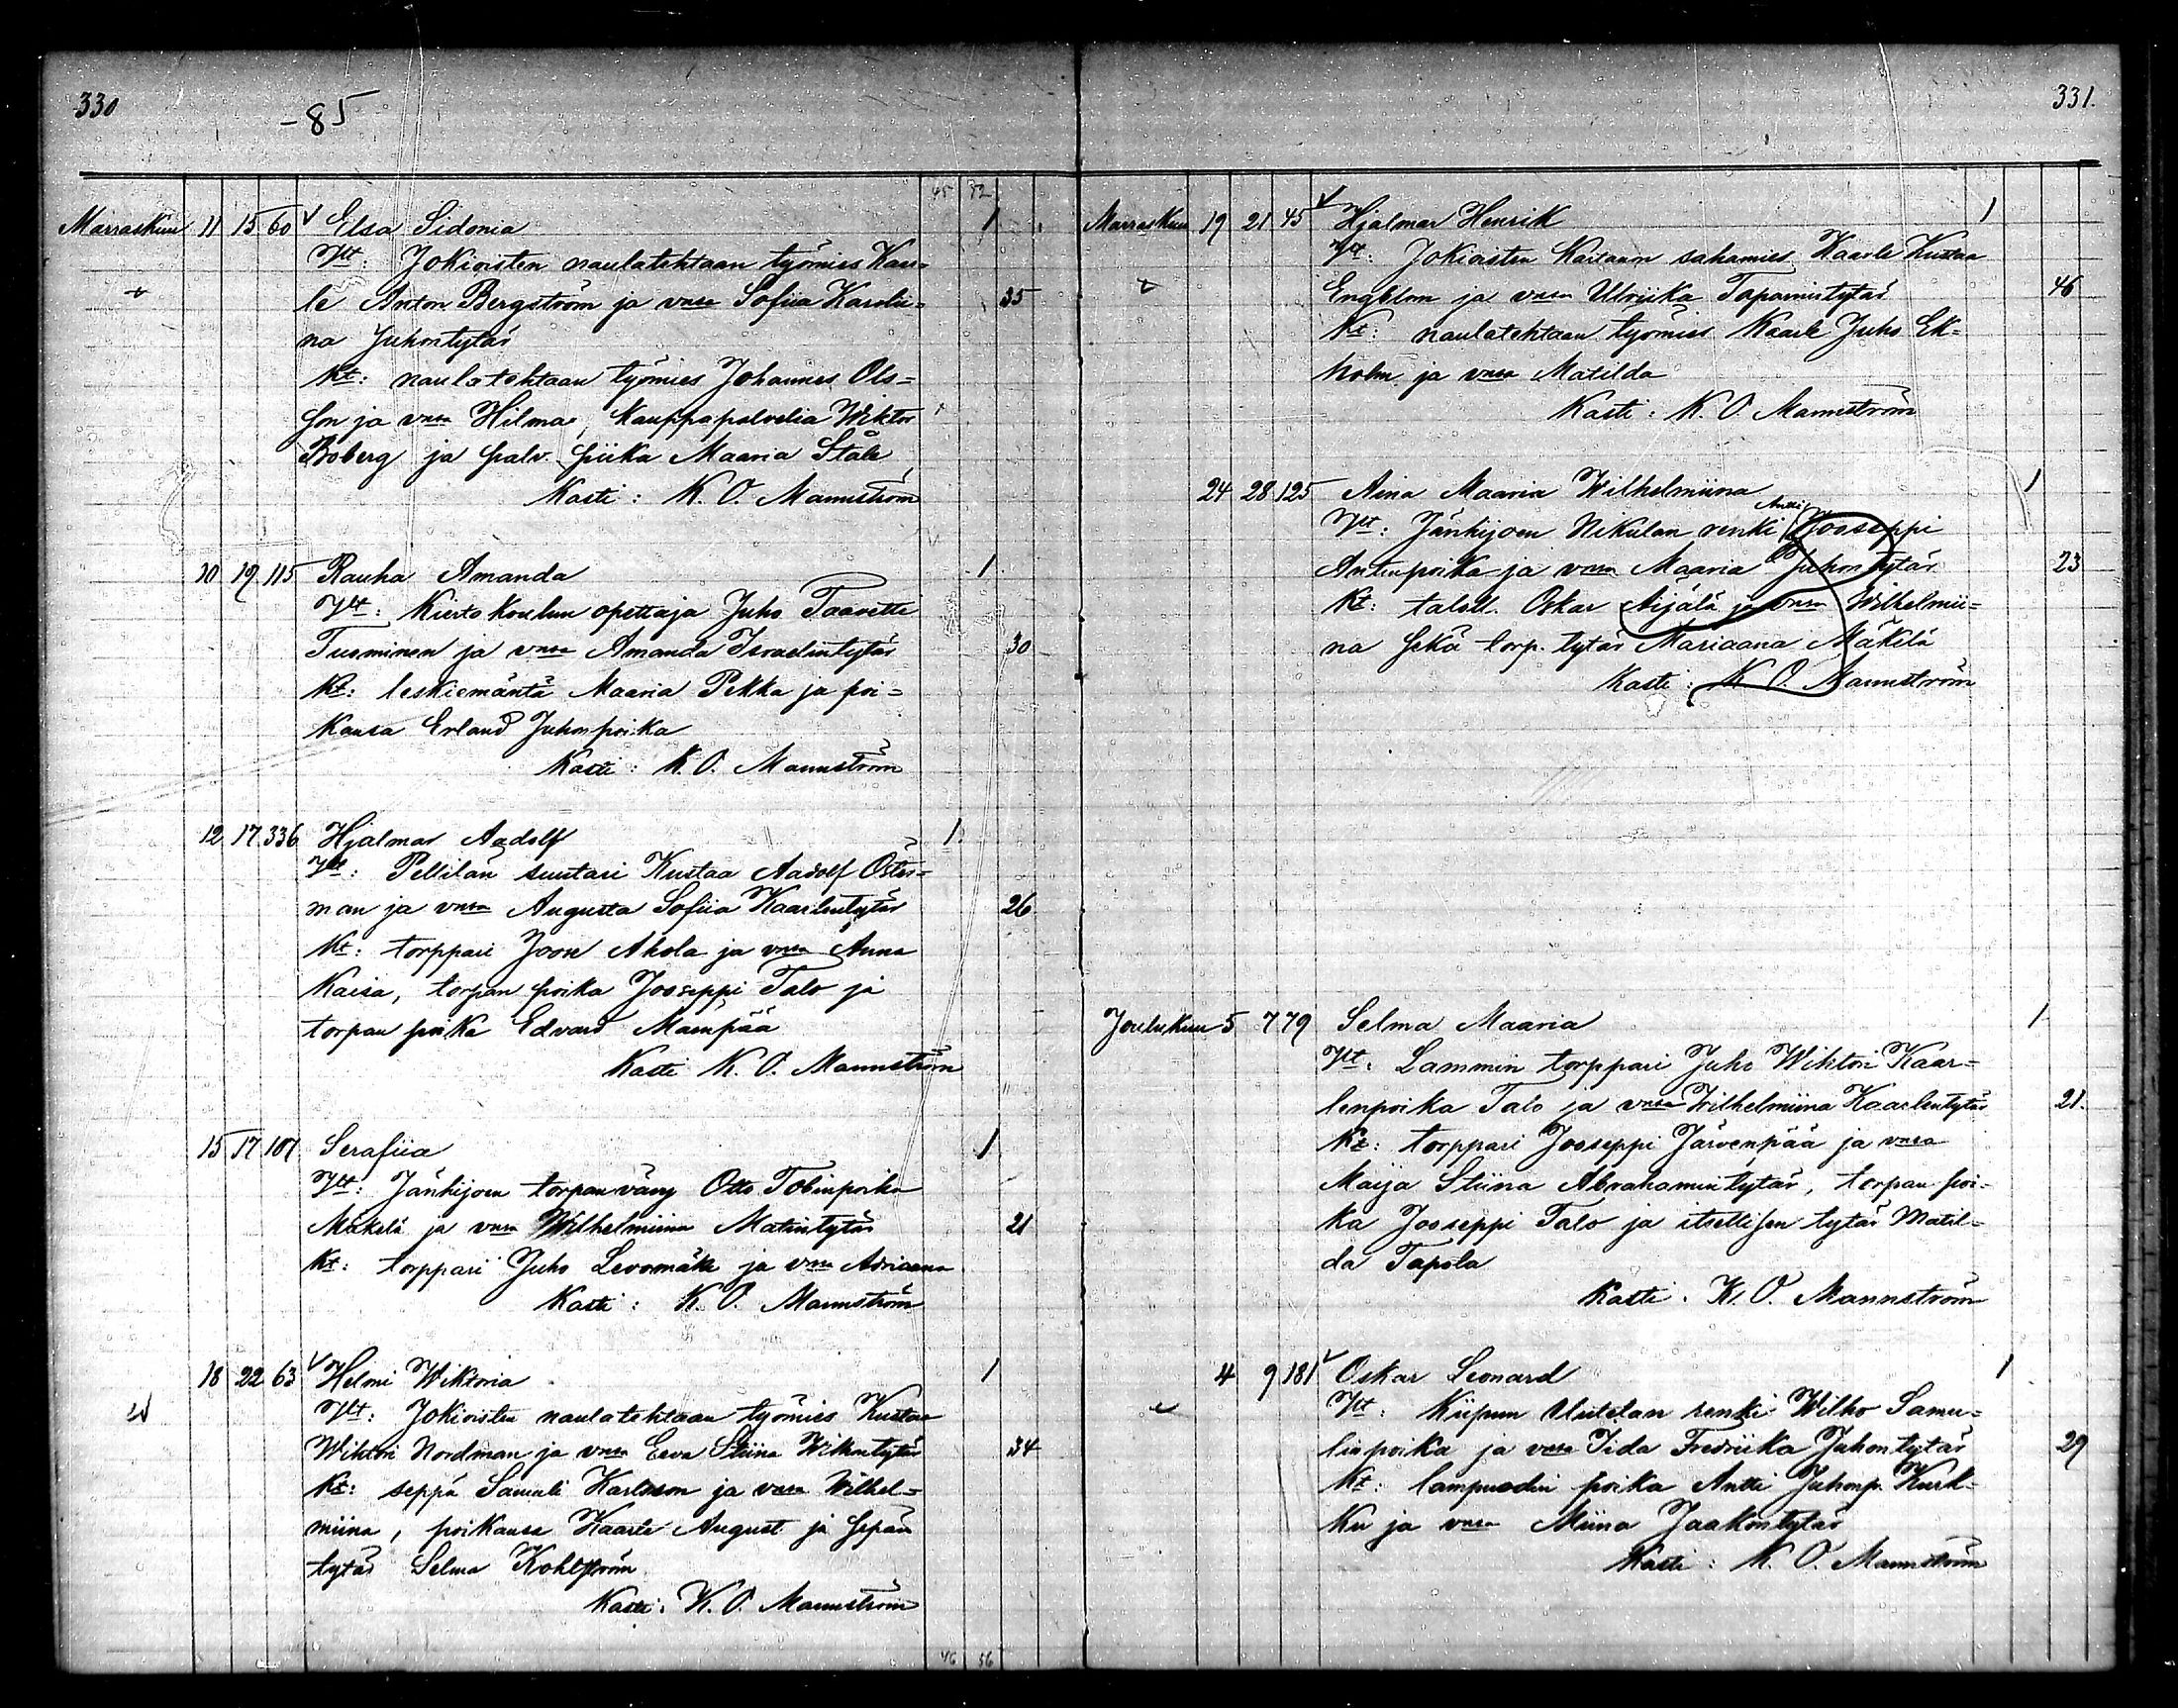 330
-85
45 32
Marraskuu 11 15 60 √ Elsa Sidonia 1
Vt: Jokioisten naulatehtaan työmies Kaar-
le Anton Bergström ja vmsa Sofiia Karolii- 35
na Juhontytär
Kt: naulatehtaan työmies Johannes Ols-
son ja vmsa Hilma, Kauppapalvelia Wiktor
Boberg ja palv. piika Maaria Ståle
Kasti: K. O. Mannström
10 19 115 Rauha Amanda 1
Vt: Kiertokoulun opettaja Juho Taavetti
Tuominen ja vmsa Amanda Israelintytär 30
Kt: leskiemäntä Maaria Pekka ja poi-
kansa Erland Juhonpoika
Kasti: K. O. Mannström
12 17 336 Hjalmar Aadolf 1
Vt: Pellilän suutari Kustaa Aadolf Öster-
man ja vmsa Augusta Sofiia Kaarlentytär 26
Kt: torppari Joose Ahola ja vmsa Anna
Kaisa, torpan poika Jooseppi Talo ja
torpan poika Edvard Mäenpää
Kasti K. O. Mannström
15 17 107 Serafiia 1
Vt: Jänhijoen torpanvävy Otto Tobinpoika
Mäkelä ja vmsa Wilhelmiina Matintytär 21
Kt: torppari Juho Levomäki ja vmsa Adriaana
Kasti: K. O. Mannström
18 22 63 √ Helmi Wiktoria 1
Vt: Jokioisten naulatehtaan työmies Kustaa
Wihtori Nordman ja vmsa Eeva Stiina Wihtorintytär 34
Kt: seppä Samuli Karlsson ja vmsa Wilhel-
miina, poikansa Kaarle August ja sepän
tytär Selma Kohlström
Kasti: K. O. Mannström
46 56
331.
Marraskuu 19 21 45 √ Hjalmar Henrik 1
Vt: Jokioisten Kartanon sahamies Kaarle Kustaa
Engblom ja vmsa Ulriika Tapanintytär 46
Kt: naulatehtaan työmies Kaarle Juho Ek-
holm ja vmsa Matilda
Kasti: K. O. Mannström
24 28 125 Aina Maaria Wilhelmiina 1
Antti
Vt: Jänhijoen Nikulan renki Jooseppi
Antinpoika ja vmsa Maaria Juhontytär 23
Kt: taloll. Oskar Äijälä ja vmsa Wilhelmii-
na sekä torp. tytär Mariaana Mäkelä
Kasti: K. O. Mannström
Joulukuu 5 7 79 Selma Maaria 1
Vt: Lammin torppari Juho Wihtori Kaar-
lenpoika Talo ja vmsa Wilhelmiina Kaarlentytär 21.
Kt: torppari Jooseppi Järvenpää ja vmsa
Maija Stiina Abrahamintytär, torpan poi-
ka Jooseppi Talo ja itsellisen tytär Matil-
da Tapola
Kasti. K. O. Mannström
4 9 181 √ Oskar Leonard 1
Vt: Kiipun Uutelan renki Wilho Samu-
linpoika ja vmsa Iida Fredriika Juhontytär 29
Kt: lampuodin poika Antti Juhonp. Kurk-
ku ja vmsa Miina Jaakontytär
Kasti: K. O. Mannström